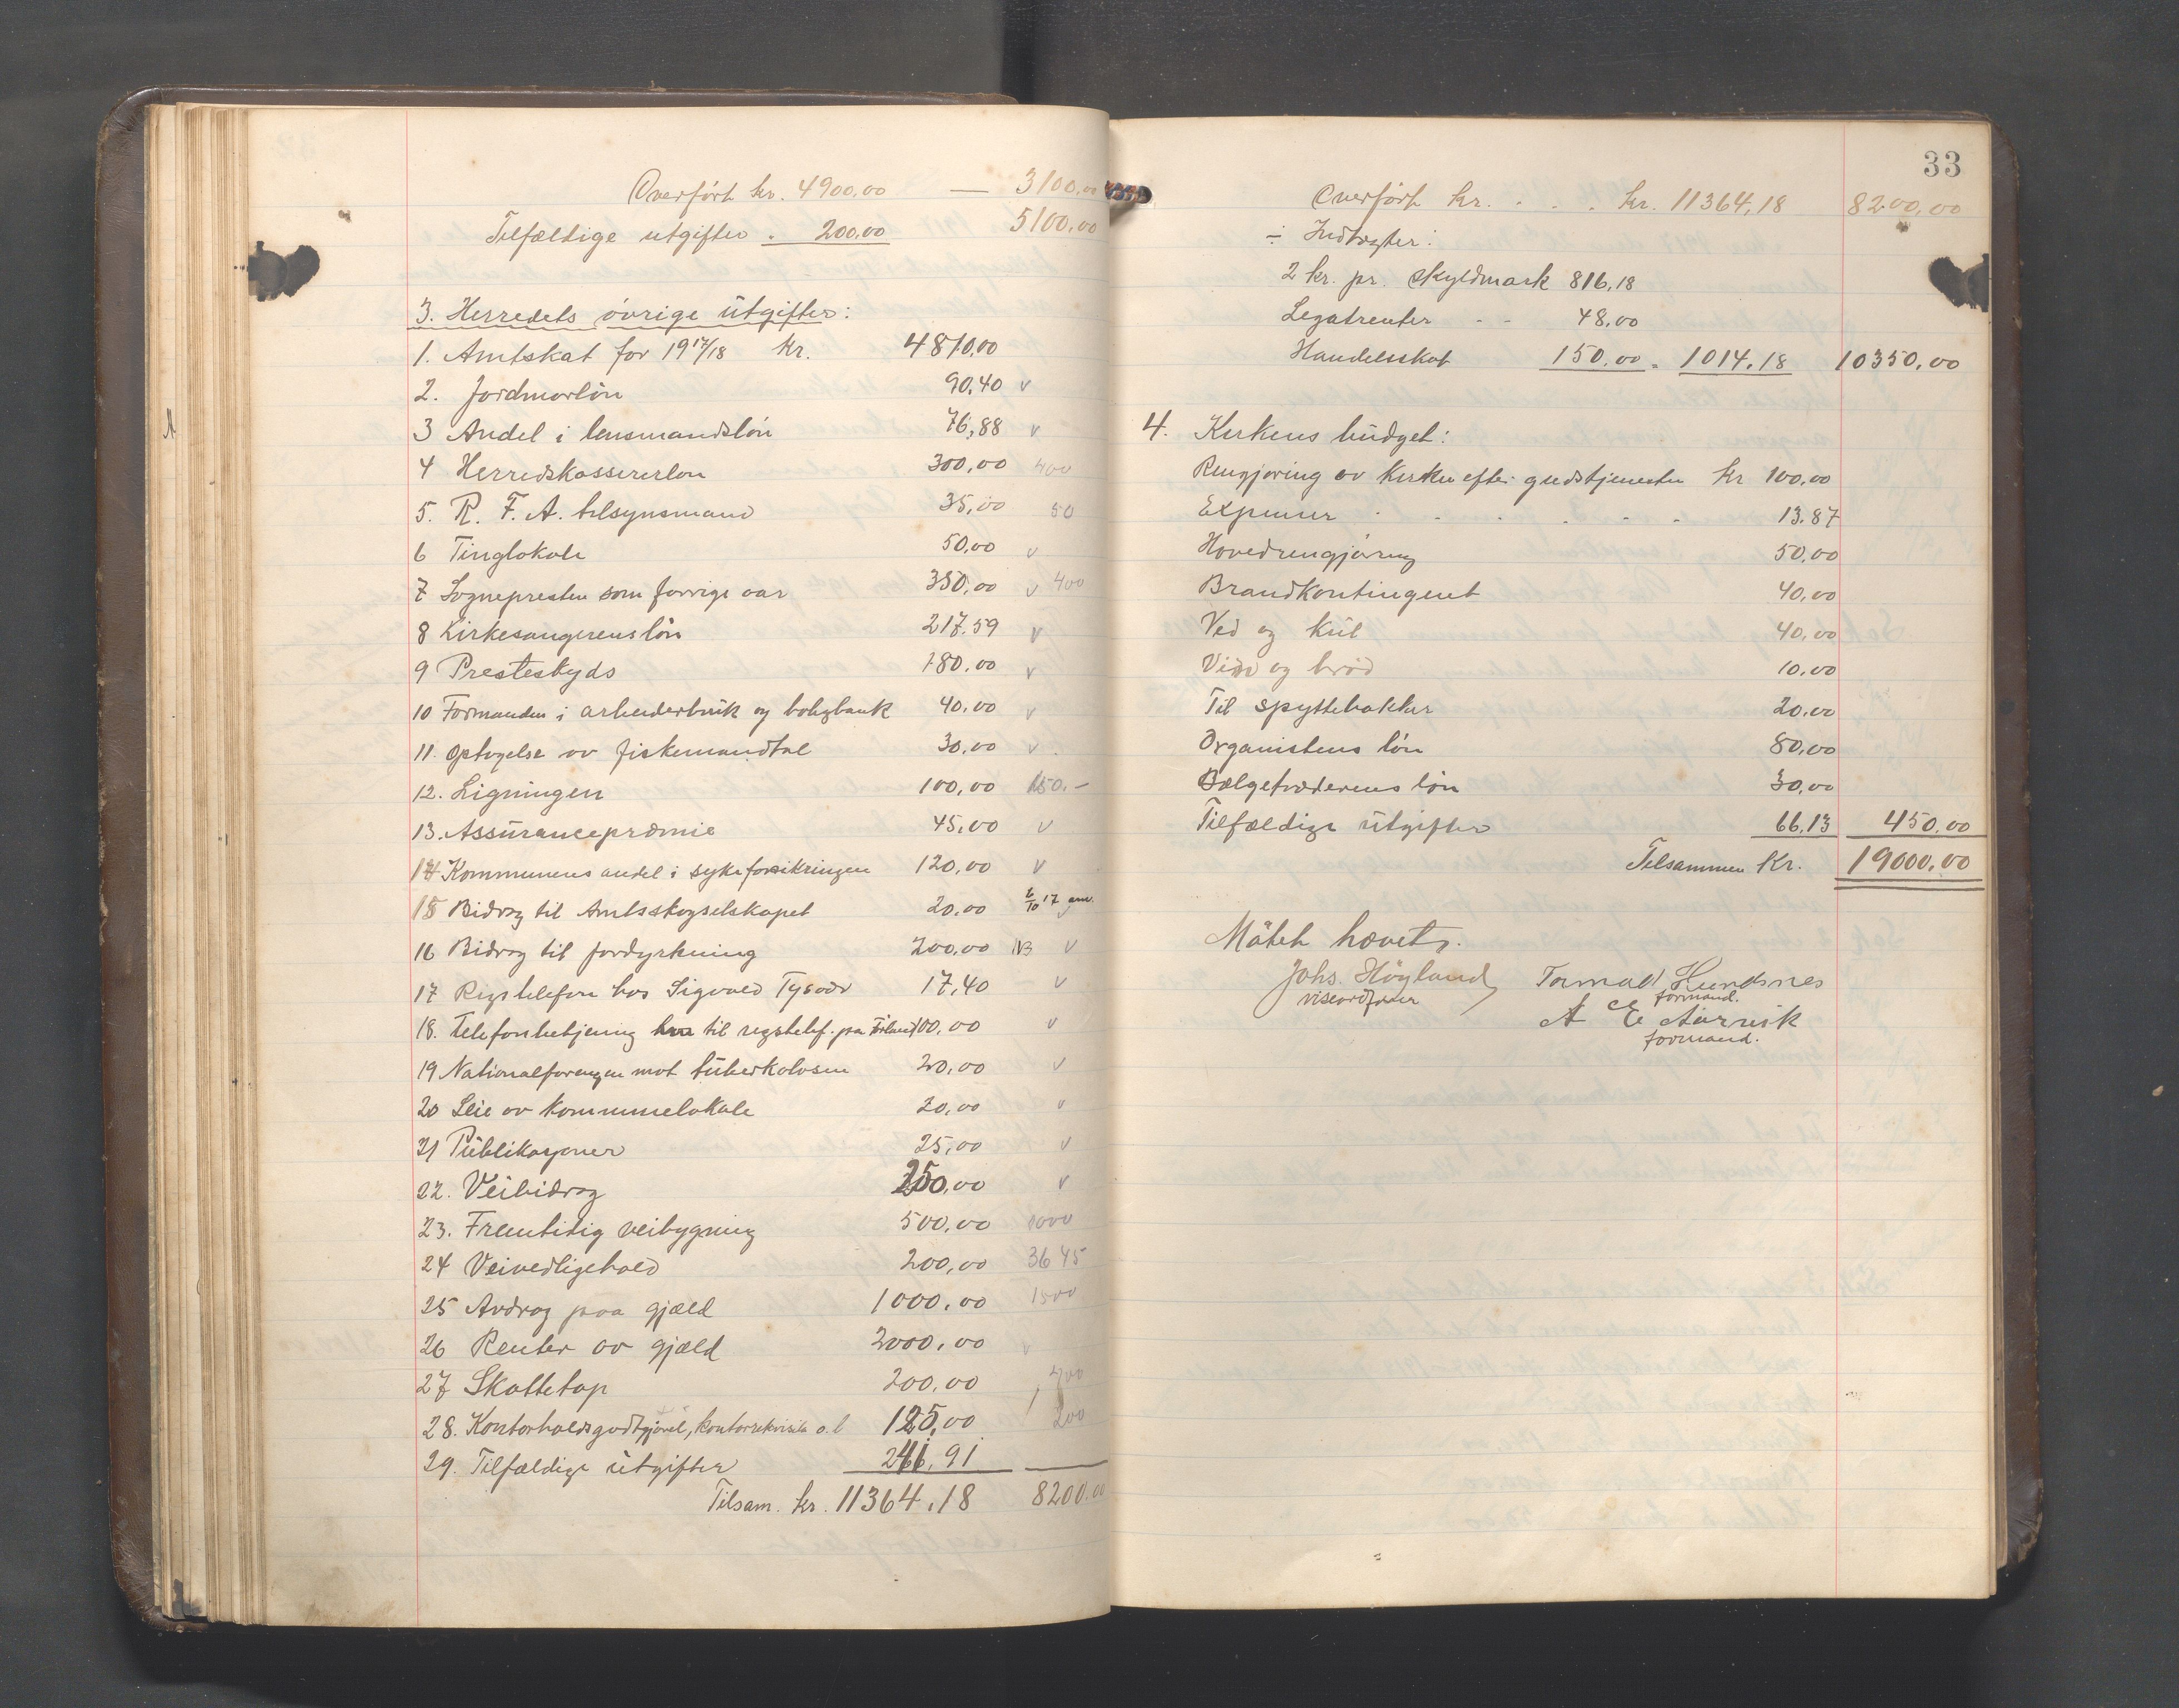 Overført kr. 4900,00 — 3100,00
Tilfældige utgifter . 200,00 5100,00
3. Herredets øvrige utgifter:
1. Amtskat for 19 17/18 kr. 4810,00
2. Jordmorløn 90,40 v
3 Andel i lensmandsløn 76,88 v
4 Herredskassererløn 300,00 400
5. R. F. A. tilsynsmand 35,00 50
6 Tinglokale 50,00 v
7 Sognepresten som forrige aar 350,00 v 400
8 Kirkesangerens løn 217.59 v
9 Presteskyds 180,00 v
10 Formanden i arbeiderbruk og boligbank 40,00 v
11. Optagelse av fiskemandtal 30,00 v
12. Ligningen 100,00 150.-
13. Assurancepræmie 45,00 v
14 Kommunens andel i sykeforsikringen 120,00 v
15 Bidrag til Amtsskogselskapet 20.00 6/10 17 anv.
16 Bidrag til jordyrkning 200,00 NB v
17 Rigstelefon hos Sigvald Tysvær 17,40 v
18. Telefonbetjening til rigstelef. paa 100,00 v
19 Nationalforengen mot tuberkolosen 20,00 v
20 Leie av kommunelokale 20,00 v
21 Publikasjoner 25,00 v
22. Veibidrag 250,00 v
23. Fremtidig veibygning 500,00 1000
24 Veivedligehold 200,00 3645
25 Avdrag paa gjæld 1000,00 1500
26 Renter av gjæld 2000,00 v
27 Skattetap 200.00 400
28. Kontorholdsgodtgjørel, kontorrekvisita o.l 125,00 200
29. Tilfældige utgifter 241,91
Tilsam. kr. 11364,18 8200.00
33
Overført kr. . . . kr. 11364,18 8200,00
÷ Indtægter:
2 kr. pr. skyldmark 816,18
Legatrenter - - 48,00
Handelsskat 150,00 . 1014,18 10350,00
4. Kirkens budget:
Rengjøring av kirken efter gudstjenester kr 100,00
Expenser . . . . . . 13.87
Hovedrengjøring 50,00
Brandkontingent 40,00
Ved og kul 40,00
Vin og brød 10,00
Til spyttebakker 20,00
Organistens løn 80,00
Bælgetræderens løn 30,00
Tilfældige utgifter 66.13 450.00
Tilsammen kr. 19000,00
Møtet hævet.
Johs. Høyland Tormod Hundsnes
viseordfører formand.
A E Aarvik
formand.